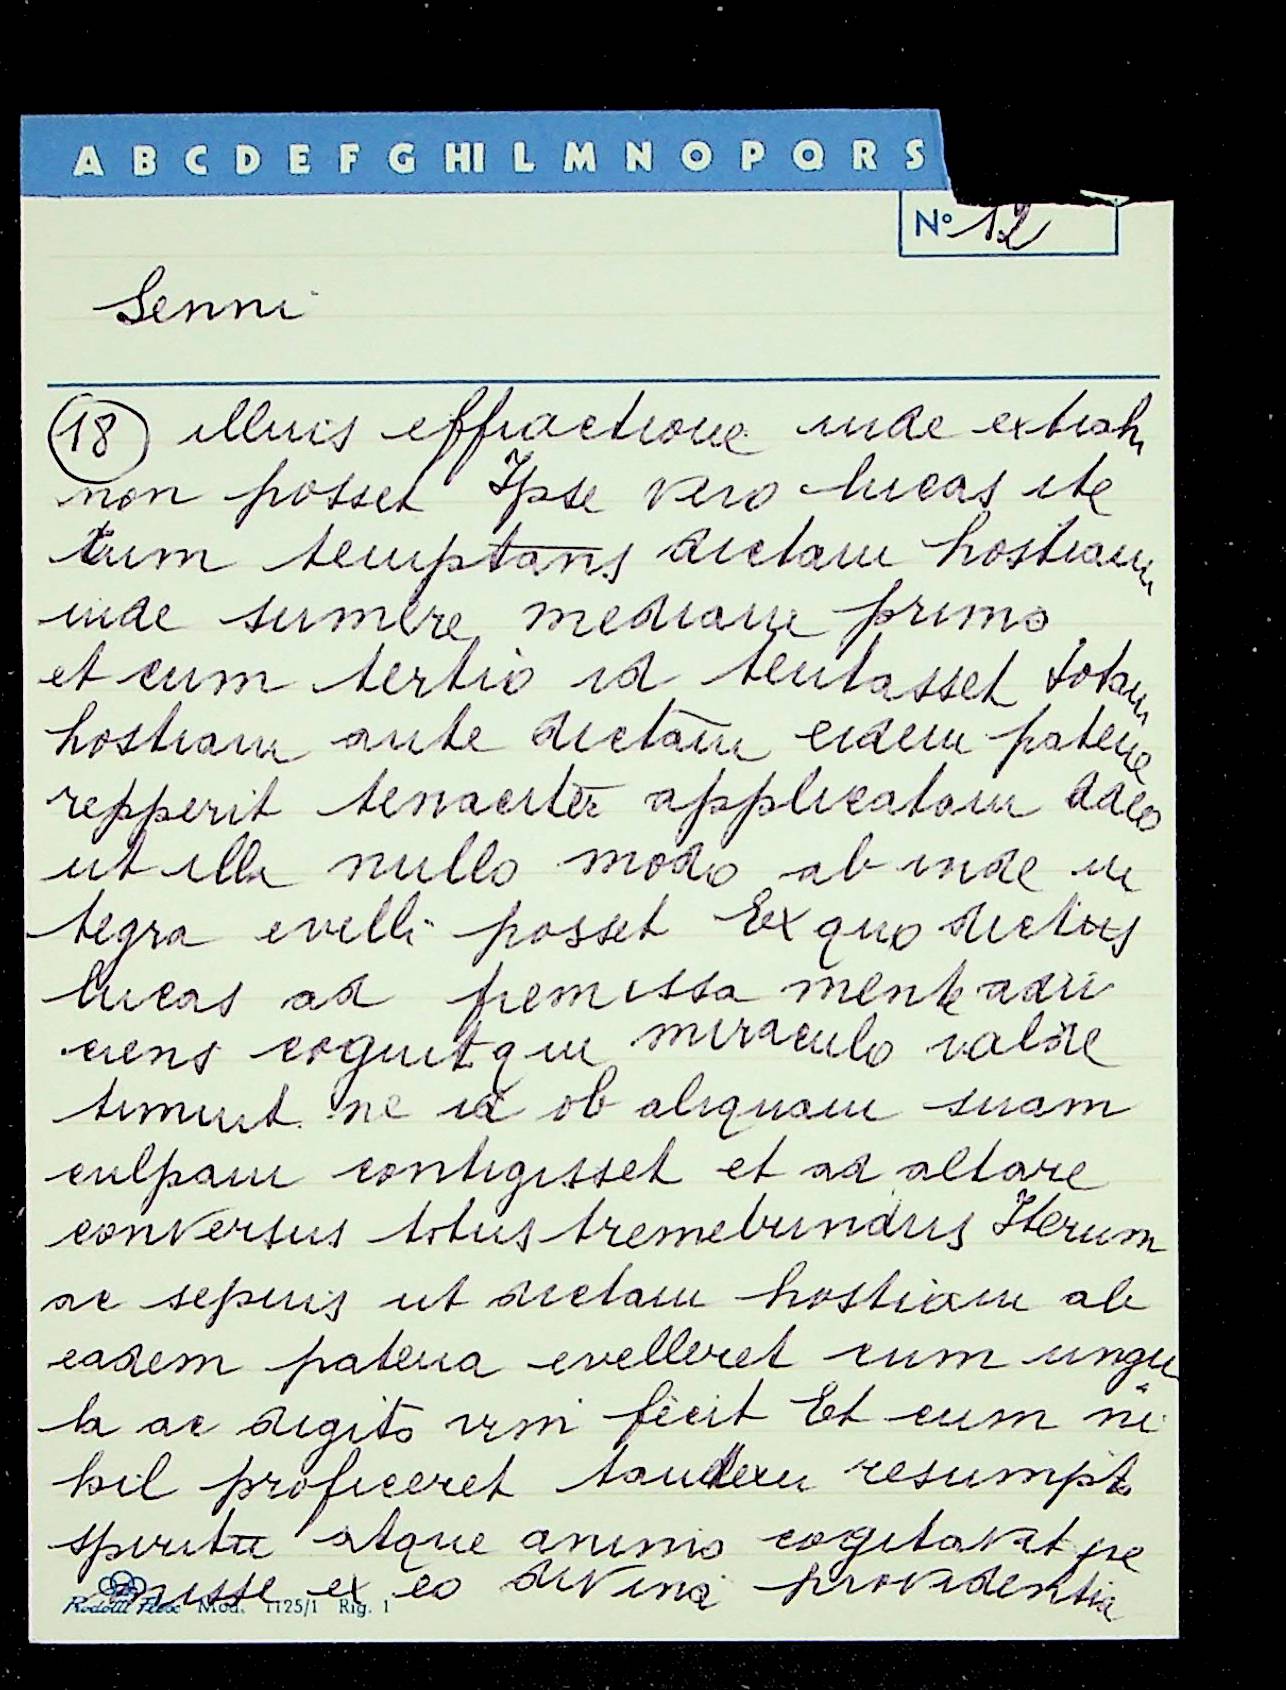 A B C D E F G HI L M N O P Q R S
N° 12
Senni
18 illius effractione inde extrahi
non posset Ipse vero lucas ite
tum temptans dictam hostiam
inde sumere mediam primo
et cum tertio id tentasset totam
hostiam ante dictam eidem patene
repperit tenaciter applicatam adeo
ut illa nullo modo ab inde in
tegra evelli posset Ex quo dictus
lucas ad premissa mente adii
ciens miraculo valde
timuit ne id ob aliquam suam
culpam contigisset et ad altare
conversus totus tremebundus Iterum
ac sepius ut dictam hostiam ab
eadem patena evelleret cum ungu
la ac digito vim fecit Et cum ni
hil proficeret tandem resumpto
spiritu atque animo cogitavit
ex eo divina providentia
Mod. 1125/1 Rig. 1